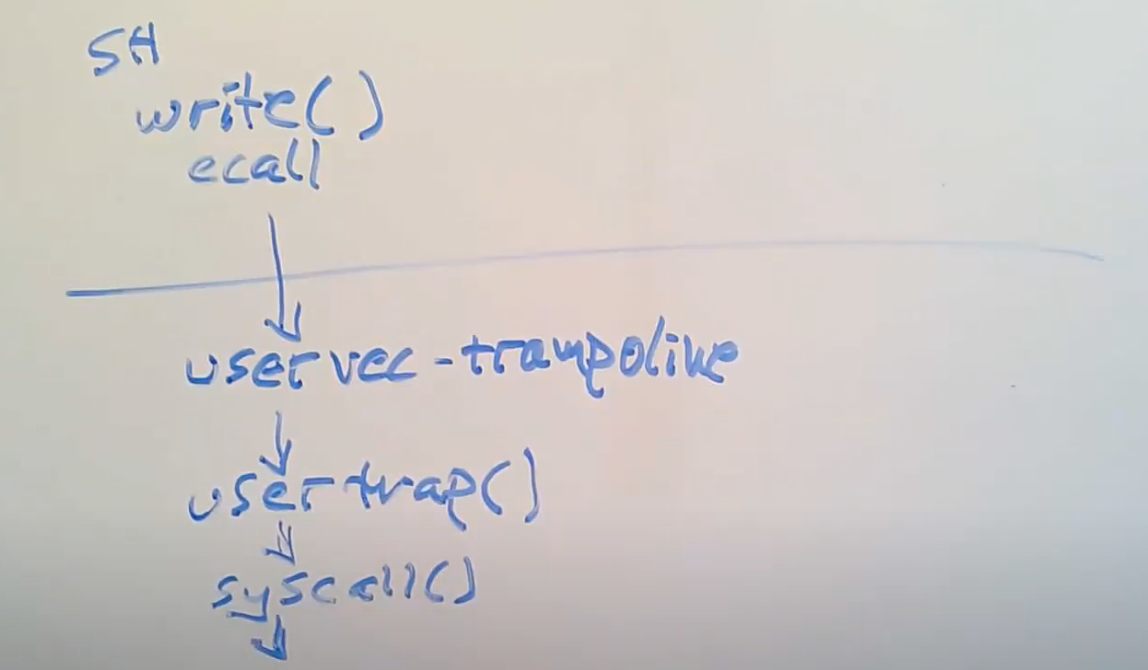 SH
write()
ecall
uservec - trampoline
usertrap()
syscall()